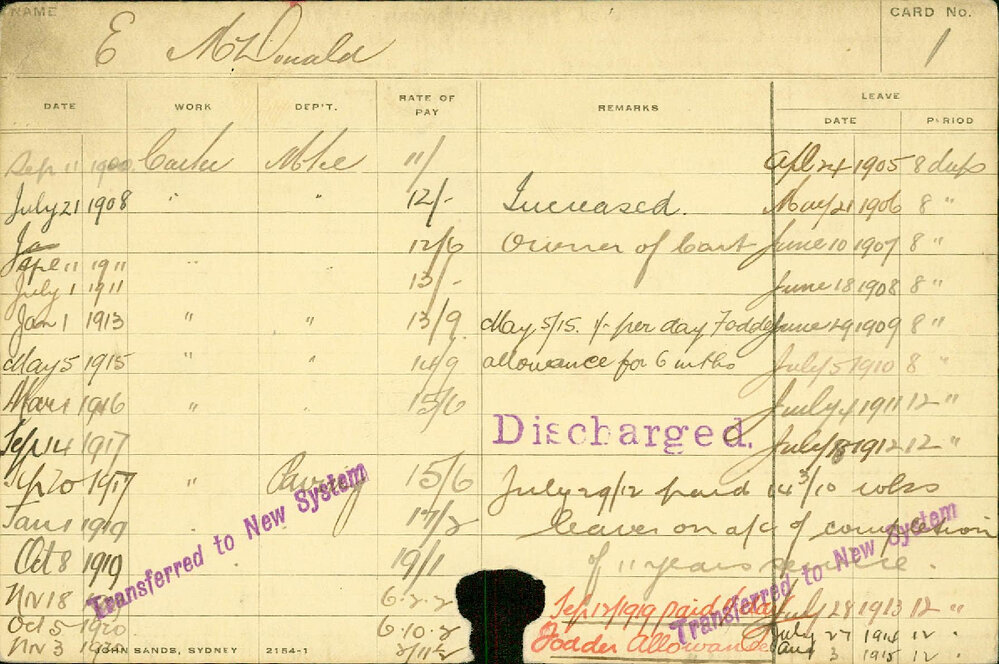 NAME
CARD No.
E McDonald
1
DATE WORK DEP'T. RATE OF PAY REMARKS LEAVE
DATE PERIOD
Sep 11 Carter 11/ Apl 24 1905 8 days
July 21 1908 " " 12/- Increased. May 21 1906 8 "
12/6 Owner of Cart June 10 1907 8 "
11 1911 "
July 1 1911 13/- June 18 1908 8 "
Jan 1 1913 " " 13/9 May 5/15. 1/- per day Fodder June 1909 8 "
May 5 1915 " " 14/9 allowance for 6 mths July 5 1910 8 "
Mar 1 1916 " 15/6 July 4 1911 12 "
Discharged.
Sep 14 1917 July 1912 12 "
Sep 20 1917 " 15/6 July 29/12 paid 14 3/10 wks
Jan 1 1919 17/2 leave on a/c of completion
Oct 8 1919 19/1 of 11 years service.
Transferred to New System
Transferred to New System
Nov 18 6.2.2 Sep 17/1919 paid July 28 1913 12 "
Oct 5 1920 6.10.2 Fodder Allowance July 27 1914 12 .
Nov 3 Aug 3 1915 12 .
JOHN SANDS, SYDNEY 2154-1